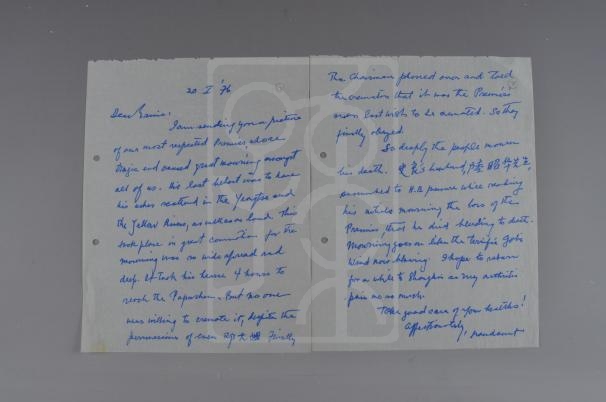 20 I '76
Dear
I am sending you a picture
of our most respected Premier, whose
tragic end caused great mourning amongst
all of us. His last behest was to have
his ashes scattered in the Yangtse and
the Yellow Rivers, as well as on land. This
took place in great commotion for the
mourning was so wide spread and
deep. It took his hearse 4 hours to
reach the Papaoshan. But no one
was willing to cremate it, despite the
permissions of even 邓大姐 Finally
The Chairman phoned over and told
the cremators that it was the Premier's
own last wish to be cremated. So they
finally obeyed.
So deeply the people mourn
his death. husband,
succumbed to H.B. pressure while reading
his article mourning the loss of the
Premier, thus he died bleeding to death.
Mourning goes on like the terrific Gobi
Wind now blowing. I hope to return
for a while to Shanghai as my arthritic
pain me so much.
Take good care of your healths!
Affectionately,